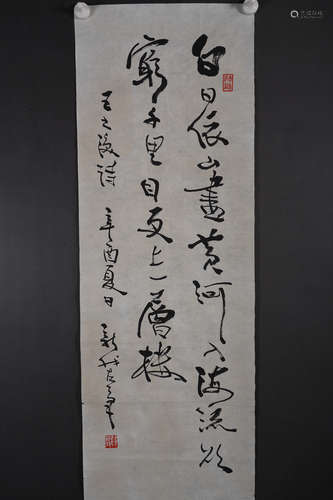 白日依山盡黃河入海流欲
窮千里目更上一層樓
王之渙詩 辛酉夏日